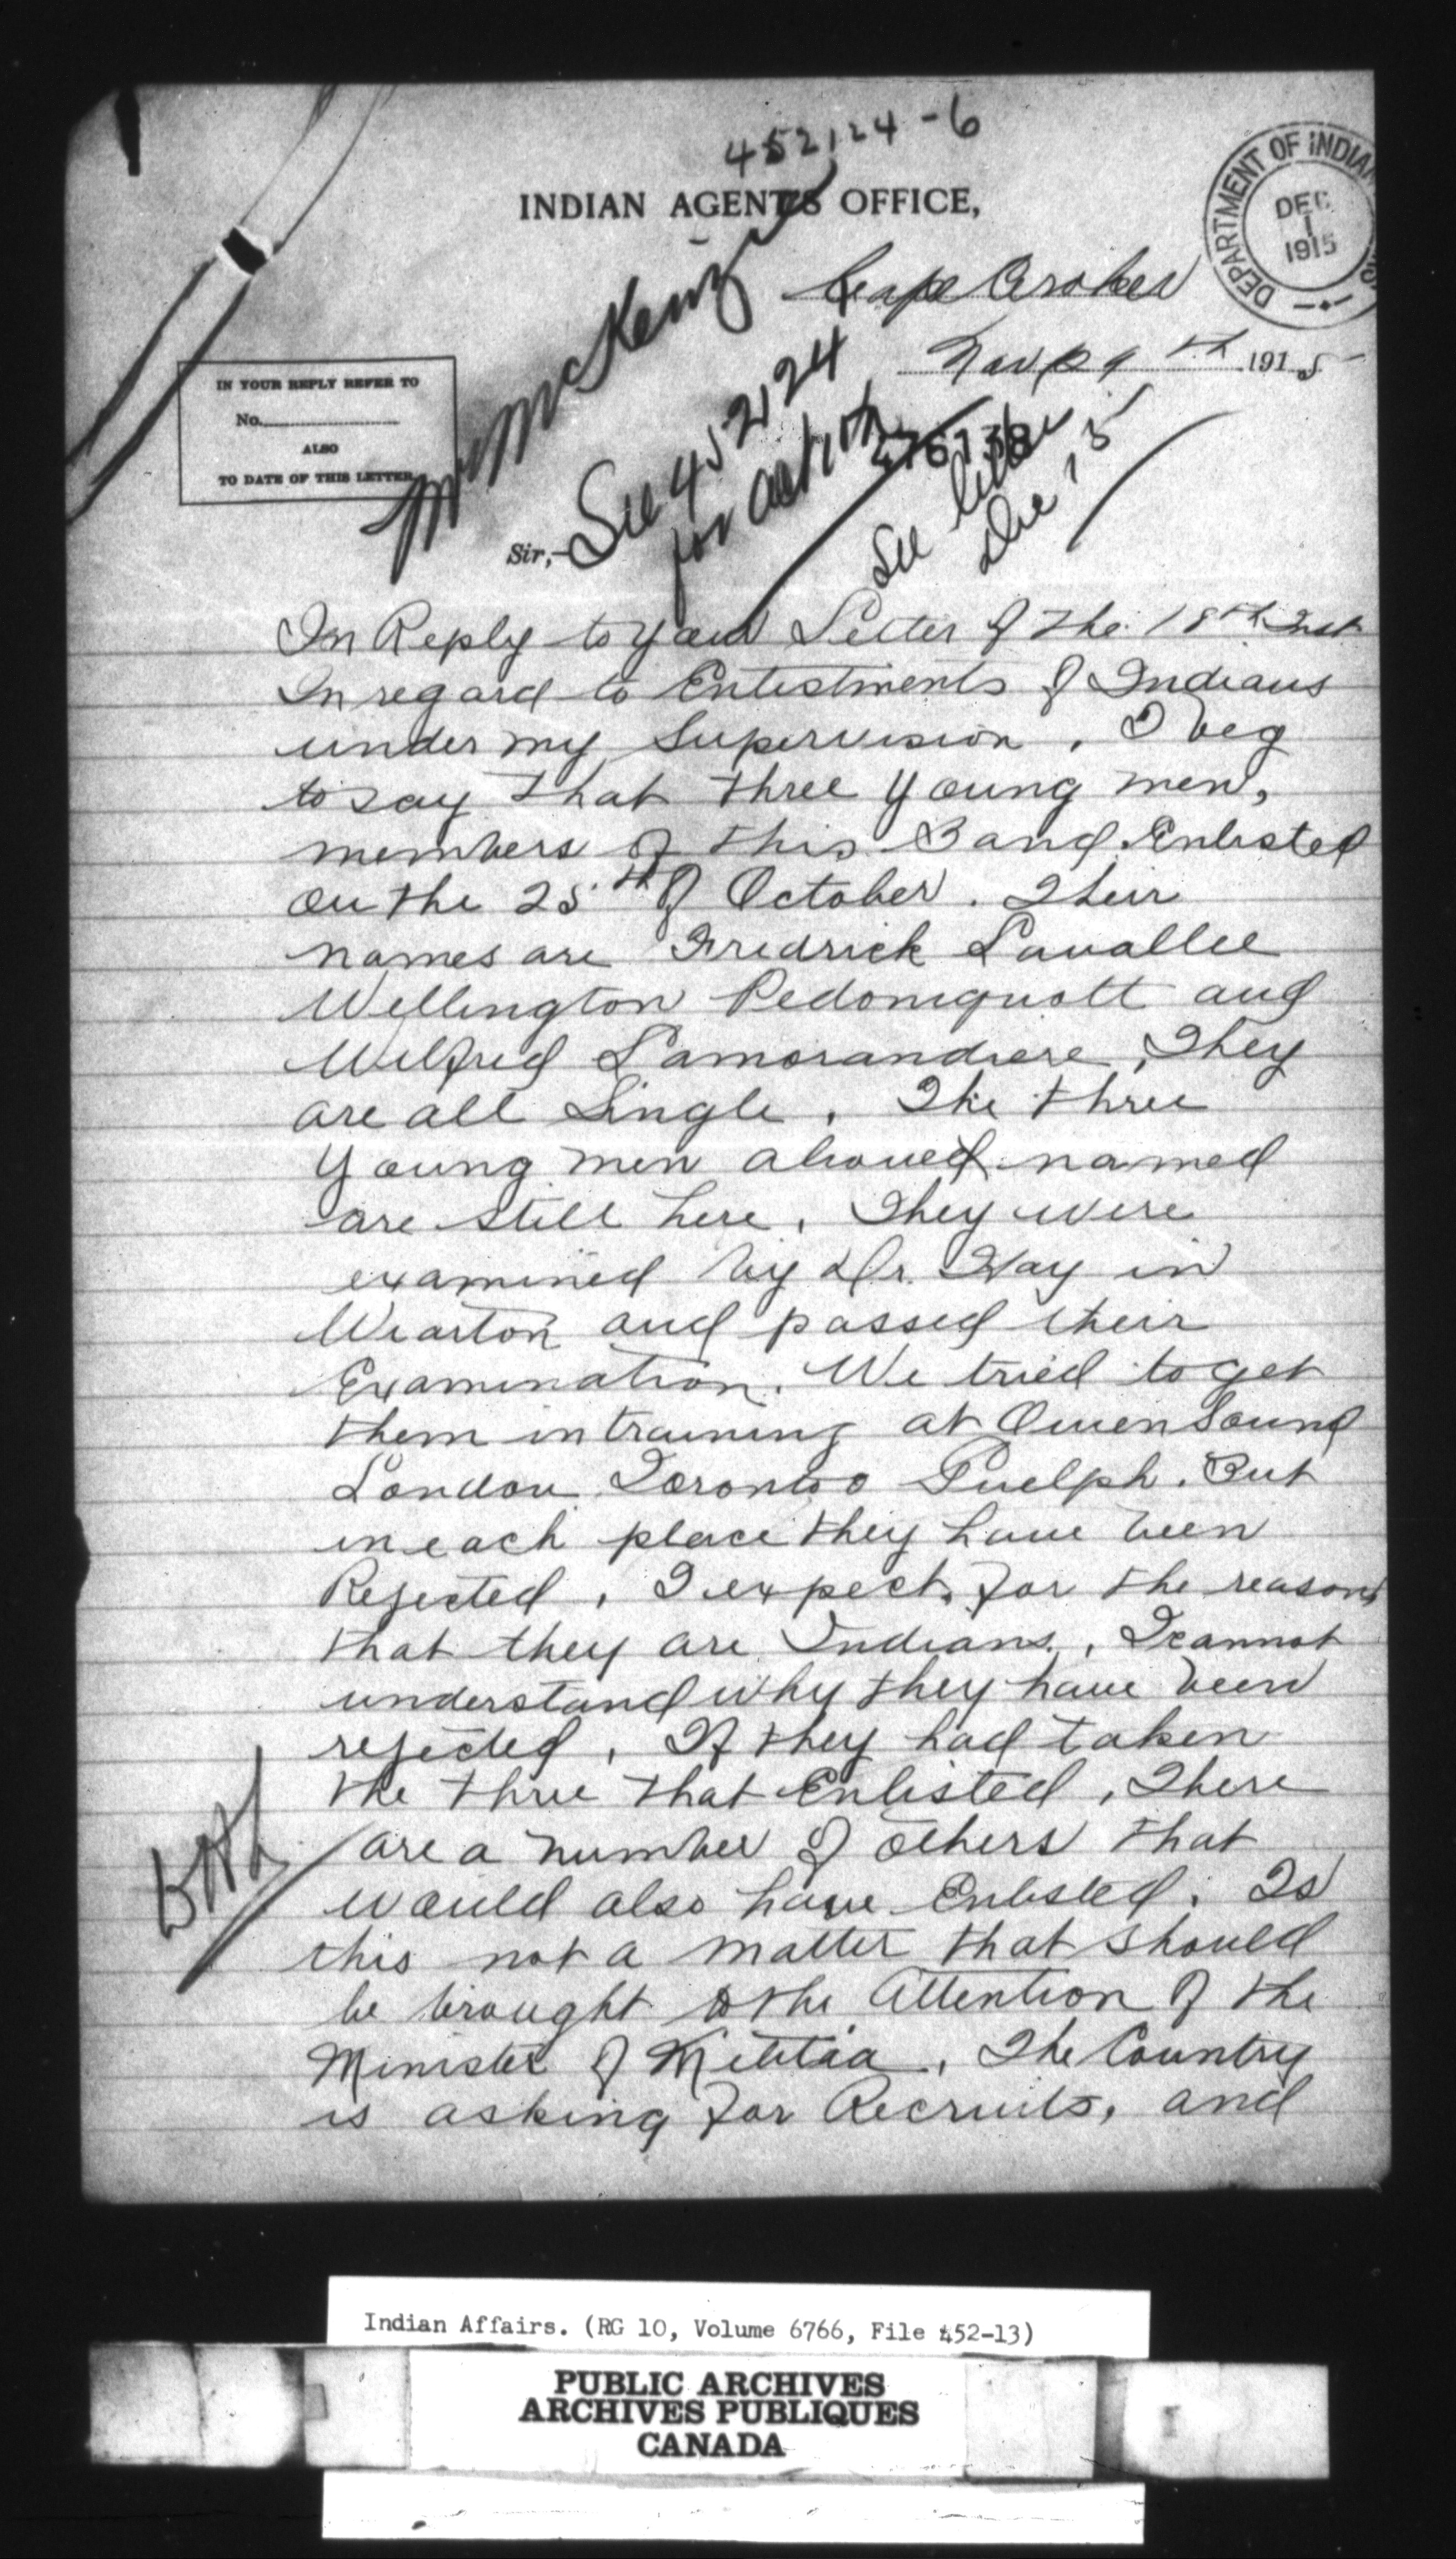 452,124-6
INDIAN AGENT'S OFFICE,
DEPARTMENT OF INDIAN
DEC 1 1915
Cape Croker
Nov 29th 1915
Mr McKenzie
IN YOUR REPLY REFER TO
No.
ALSO
TO DATE OF THIS LETTER
See 452124
for action
See letter
Dec, 15
Sir,—
In Reply to your Letter of the 18th Inst
In regard to Enlistments of Indians
under my Supervision, I beg
to say that three young men,
members of this Band Enlisted
on the 25th of October. Their
names are Fredrick Lavallee
Wellington Pedoniquott and
Wilfred Lamorandiere, They
are all Single, The three
young men aboved named
are still here, They were
examined by Dr. Hay in
Wiarton and passed their
Examination. We tried to get
them in training at Owen Sound
London Toronto Guelph. But
in each place they have been
Rejected, I expect for the reasons
that they are Indians, I cannot
understand why they have been
rejected, If they had taken
the three that Enlisted, There
are a number of others that
would also have Enlisted. Is
this not a matter that should
be brought to the Attention of the
Minister of Militia, The Country
is asking for Recruits, and
Indian Affairs. (RG 10, Volume 6766, File 452-13)
PUBLIC ARCHIVES
ARCHIVES PUBLIQUES
CANADA